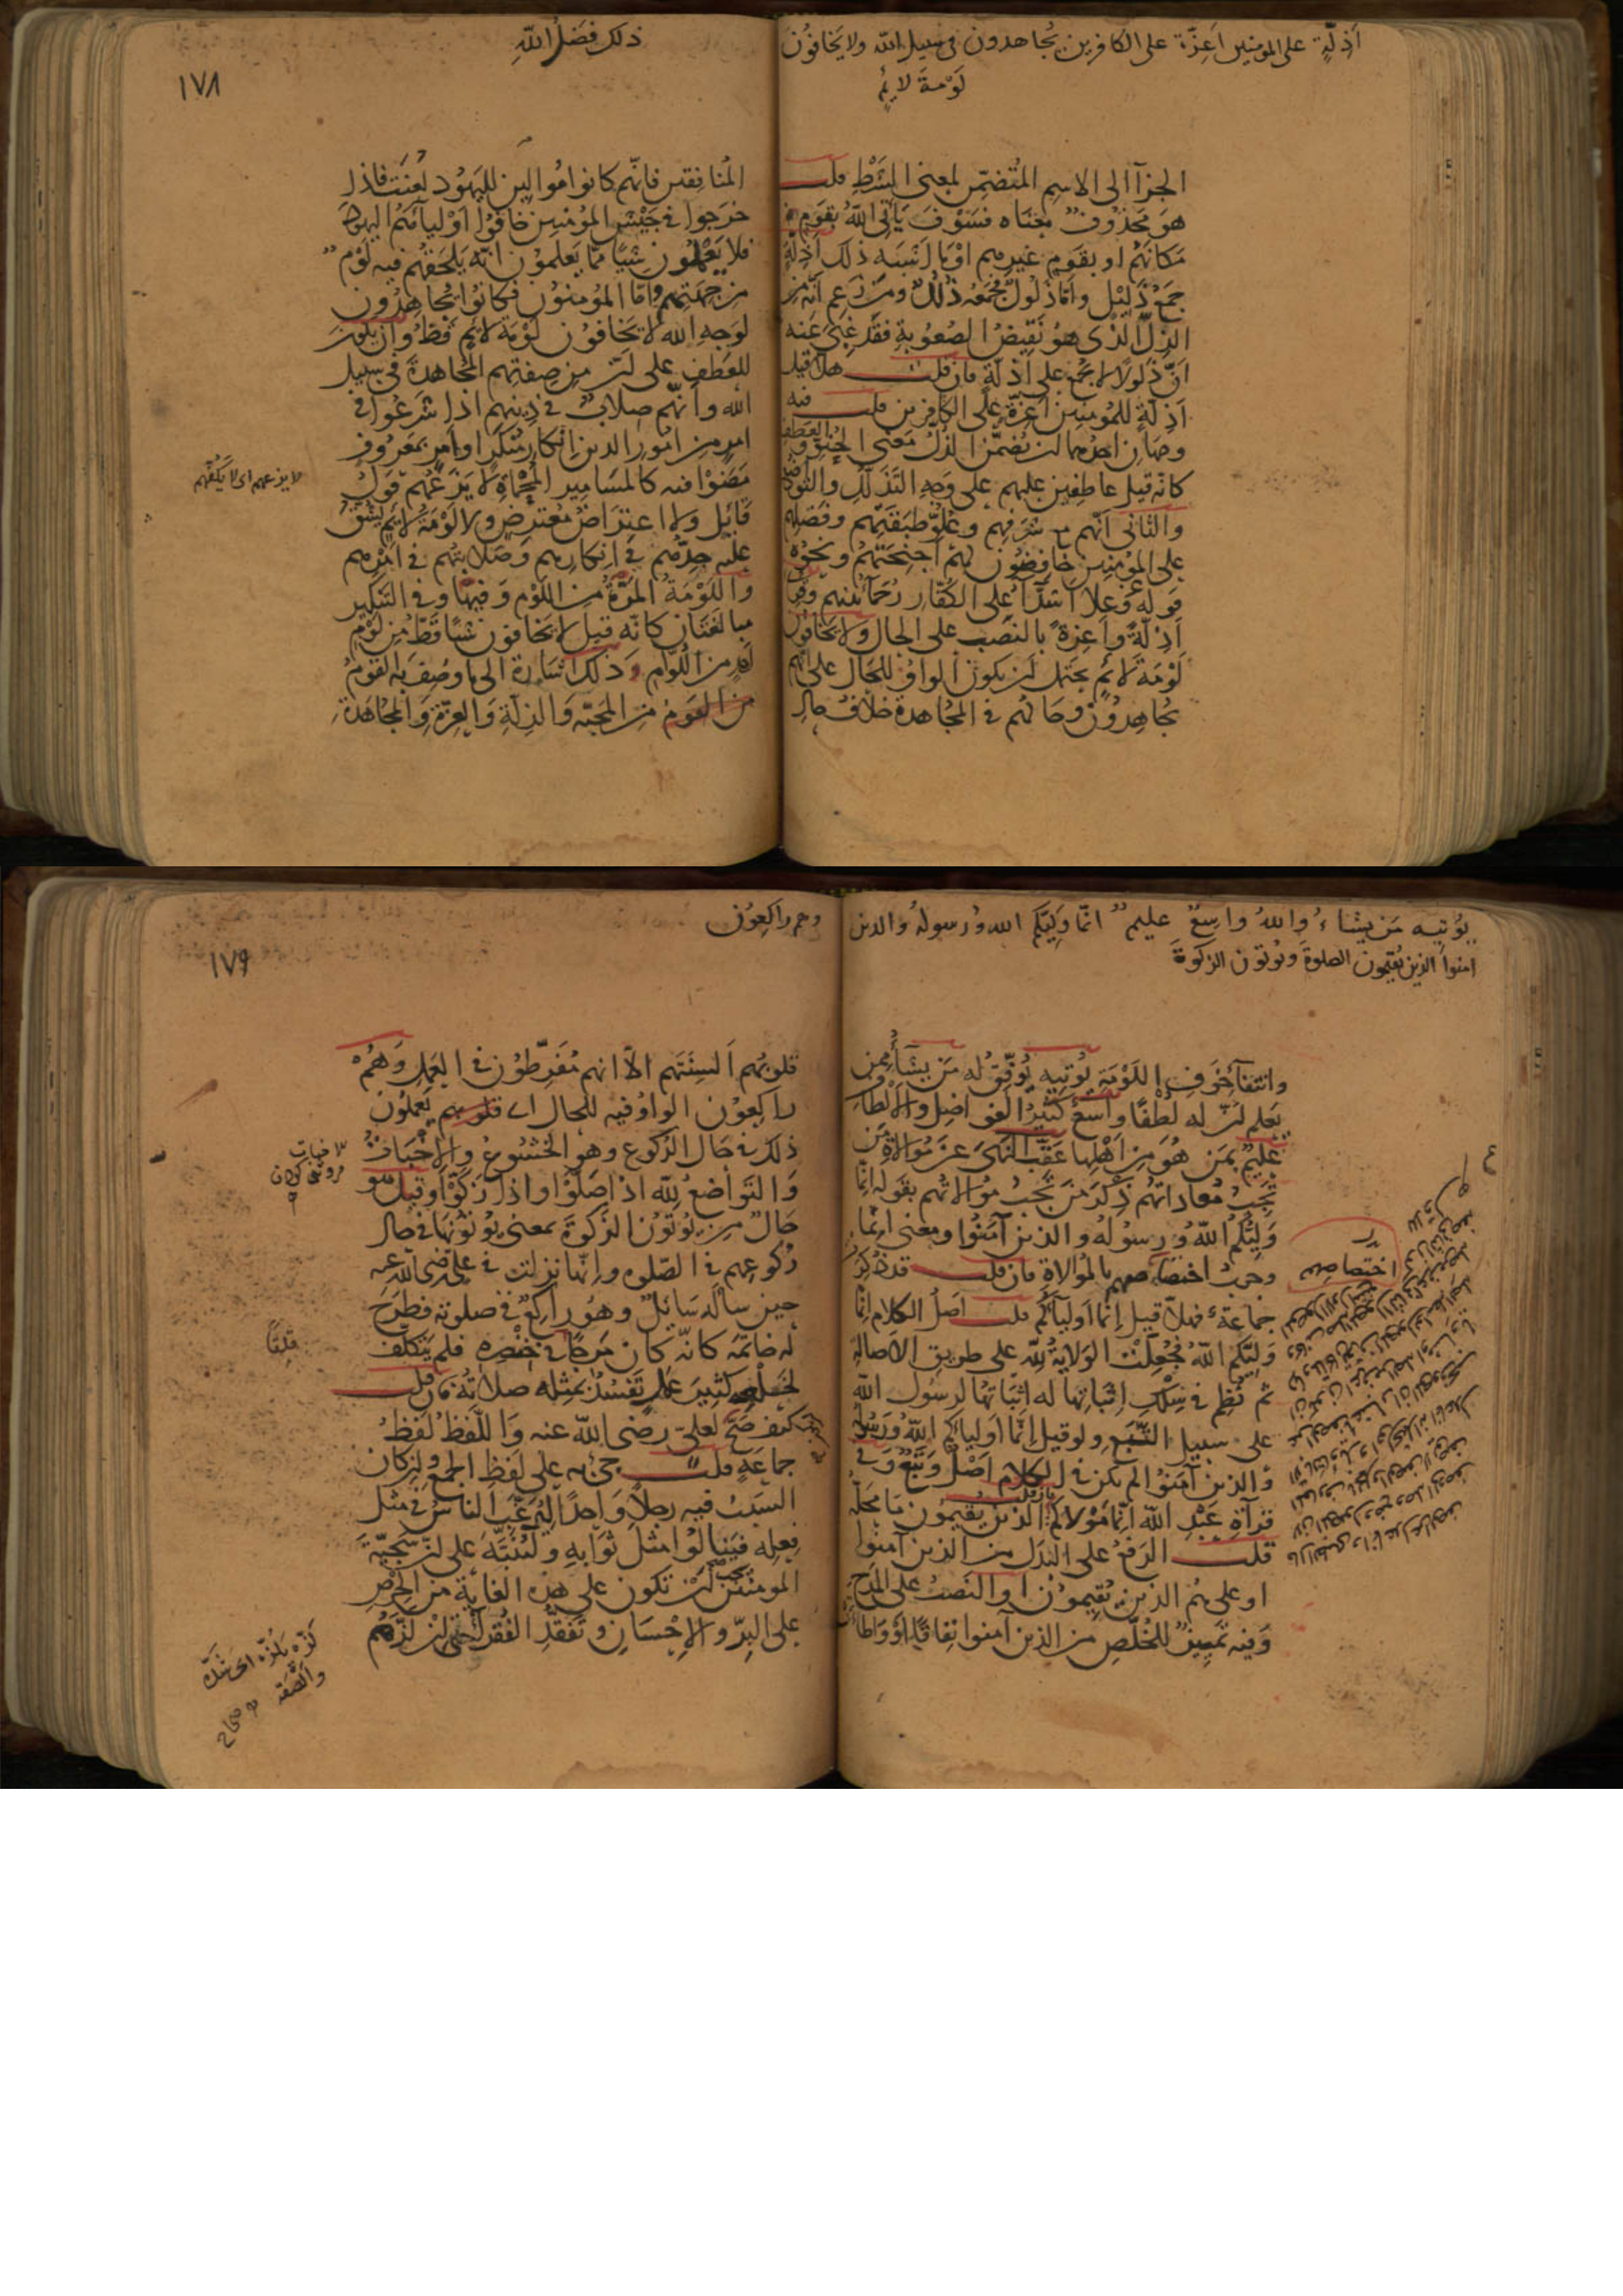 أذلة على المومنين اعزة على الكافرين يجاهدون فى سبيل الله ولا يخافون
لومة لائم
الجزآ الى الاسم المتضمن لمعنى الشرط قلت
هو محذوف معناه فسوف ياتى الله بقوم
مكانهم او بقوم غيرهم او ما اشبه ذلك اذلة
جمع ذليل واما ذلول فجمعه ذلل ومن زعم انه من
الذل الذى هو نقيض الصعوبة فقد غبى عنه
ان ذلولا لا يجمع على اذلة فان قلت هلا قيل
اذلة للمومنين اعزة على الكافرين قلت فيه
وجهان احدهما لن يضمن الذل معنى الحنو والعطف
كانه قيل عاطفين عليهم على وجه التذلل والتواضع
والثانى انهم مع شرفهم وعلو طبقتهم وفضلهم
على المومنين خافضون لهم اجنحتهم ونحوه
قوله عز وعلا اشدآء على الكفار رحمآء بينهم وقرئ
اذلة واعزة بالنصب على الحال ولا يخافون
لومة لائم يحتمل لن يكون الواو للحال على انهم
يجاهدون وحالهم فى المجاهدة خلاف حال
ذلك فضل الله
١٧٨
المنافقين فانهم كانوا موالين لليهود لعنت فاذا
خرجوا فى جيش المومنين خافوا اوليآئهم اليهود
فلا يعملون شيئا مما يعلمون انه يلحقهم فيه لوم
من جهتهم واما المؤمنون فكانوا يجاهدون
لوجه الله لا يخافون لومة لائم قط وان يكون
للعطف على لن من صفتهم المجاهدة فى سبيل
الله وانهم صلاب فى دينهم اذا شرعوا فى
امر من امور الدين انكار منكر او امر بمعروف
مضوا فيه كالمسامير المحماة لا يزعهم قول
قائل ولا اعتراض معترض ولا لومة لائم يشق
عليه جدهم فى انكارهم وصلابتهم فى امرهم
واللومة المرة من اللوم وفيها وفى التنكير
مبالغتان كانه قيل لا يخافون شيئا قط من لوم
احد من اللوام وذلك اشارة الى ما وصف به القوم
من القوم من المحبة والذلة والعزة والمجاهدة
لا يزعهم اى لا يكفهم
يؤتيه من يشاء والله واسع عليم انما وليكم الله ورسوله والذين
امنوا الذين يقيمون الصلوة ويوتون الزكوة
وانتفآء خوف اللومة يؤتيه يوفق له من يشآء ممن
يعلم لن له لطفا واسع كثير الفواضل والالطاف
عليم بمن هو من اهلها عقب النهى عن موالاة من
تجب معاداتهم ذكر من تجب موالاتهم بقوله انما
وليكم الله ورسوله والذين آمنوا ومعنى انما
وجوب اختصاصهم بالموالاة فان قلت قد ذكرت
جماعة فهلا قيل انما اوليآؤكم قلت اصل الكلام انما
وليكم الله فجعلت الولاية لله على طريق الاصالة
ثم نظم فى سلك اثباتها له اثباتها لرسول الله
على سبيل التبع ولو قيل انما اوليآؤكم الله ورسوله
والذين آمنوا لم يكن فى الكلام اصل وتبع وفى
قرآة عبد الله انما مولاكم فان قلت الذين يقيمون ما محله
قلت الرفع على البدل من الذين آمنوا
او على هم الذين يقيمون او النصب على المدح
وفيه تمييز للخلص من الذين آمنوا نفاقا او واطات
اختصاصهم
وهم راكعون
١٧٩
قلوبهم السنتهم الا انهم مفرطون فى العمل وهم
راكعون الواو فيه للحال اى يعملون
ذلك فى حال الركوع وهو الخشوع والاخبات
والتواضع لله اذا صلوا واذا زكوا وقيل هو
حال من يؤتون الزكوة بمعنى يؤتونها فى حال
ركوعهم فى الصلوة وانها نزلت فى على رضى الله عنه
حين ساله سائل وهو راكع فى صلوته فطرح
له خاتمه كانه كان مرجا فى خنصره فلم يتكلف
لخلعه كثير عمل تفسد بمثله صلاته فان قلت
كيف صح لعلى رضى الله عنه واللفظ لفظ
جماعة قلت جئ به على لفظ الجمع ولن كان
السبب فيه رجلا واحدا ليرغب الناس فى مثل
فعله فينالوا مثل ثوابه ولينبه على لن سجية
المومنين يجب لن تكون على هذه الغاية من الحرص
على البر والاحسان وتفقد الفقرآء حتى لن لزهم
الاخبات
قلقا
لزه يلزه اى شده
والصقه صحاح